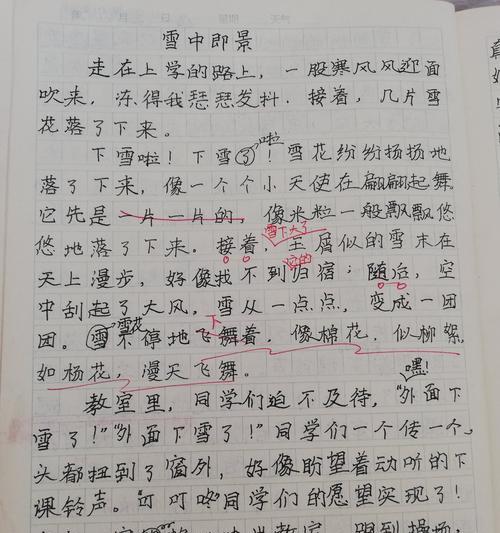 雪中即景
走在上学的路上，一股寒风风迎面
吹来，冻得我瑟瑟发抖．接着，几片雪
花落了下来。
啦
下雪啦！下雪了！雪花纷纷扬扬地
落了下来，像一个个小天使在翩翩起舞。
它先是一片一片的，像米粒一般飘飘悠
雪下大了
悠地落了下来．接着，玉屑似的雪末在
它的
天上漫步，好像找不到归宿；随后，空
中刮起了大风，雪从一点点，变成一团
雪花 下
团。雪不停地飞舞着，像棉花，似柳絮，
如杨花，漫天飞舞。
嘿！
教室里，同学们迫不及待，“外面下
雪了！”“外面下雪了！”同学们一个传一个，
头都扭到了窗外，好像盼望着动听的下
课铃声。“叮叮咚”同学们的愿望实现了！
教室，跑到操场，